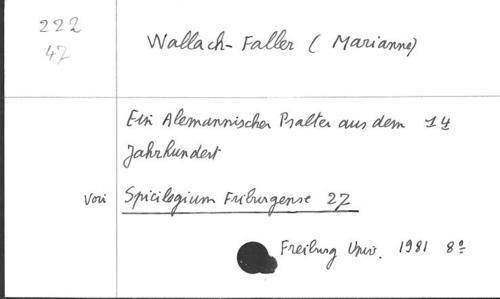 222
47
Wallach-Faller (Marianne)
Ein Alemannischer Psalter aus dem 14
Jahrhundert
Voir Spicilegium Friburgense 27
Freiburg Univ. 1981 8º